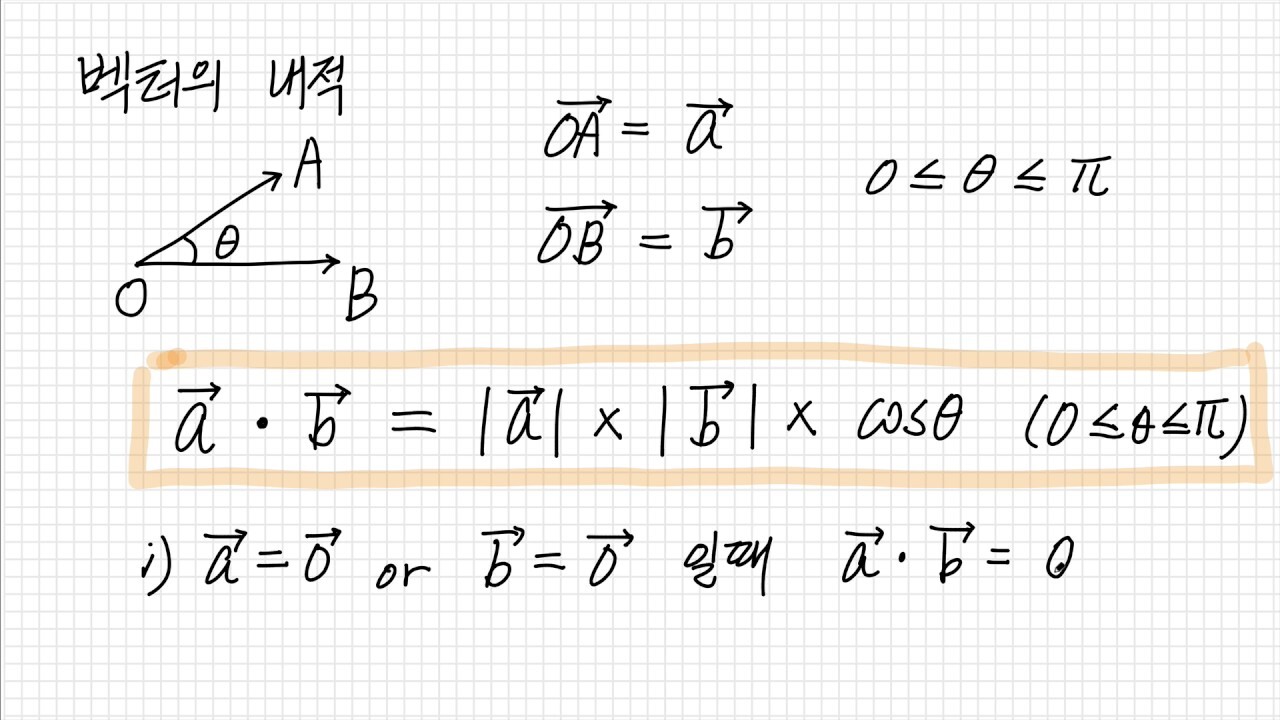 벡터의 내적
A
θ
O
B
$\overrightarrow{OA} = \vec{a}$
$\overrightarrow{OB} = \vec{b}$
$0 \leq \theta \leq \pi$
$\vec{a} \cdot \vec{b} = |\vec{a}| \times |\vec{b}| \times \cos\theta \quad (0 \leq \theta \leq \pi)$
i) $\vec{a} = \vec{0}$ or $\vec{b} = \vec{0}$ 일때 $\vec{a} \cdot \vec{b} = 0$